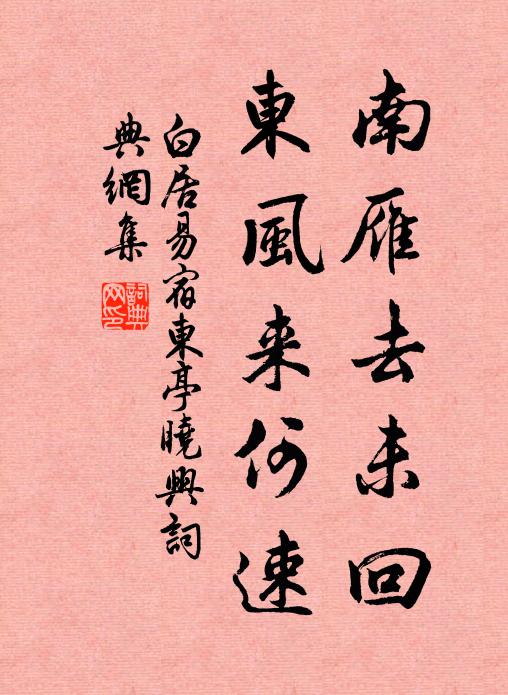 南雁去未回
東風来何速
白居易宿東亭曉興詞
典網集
詞典网印